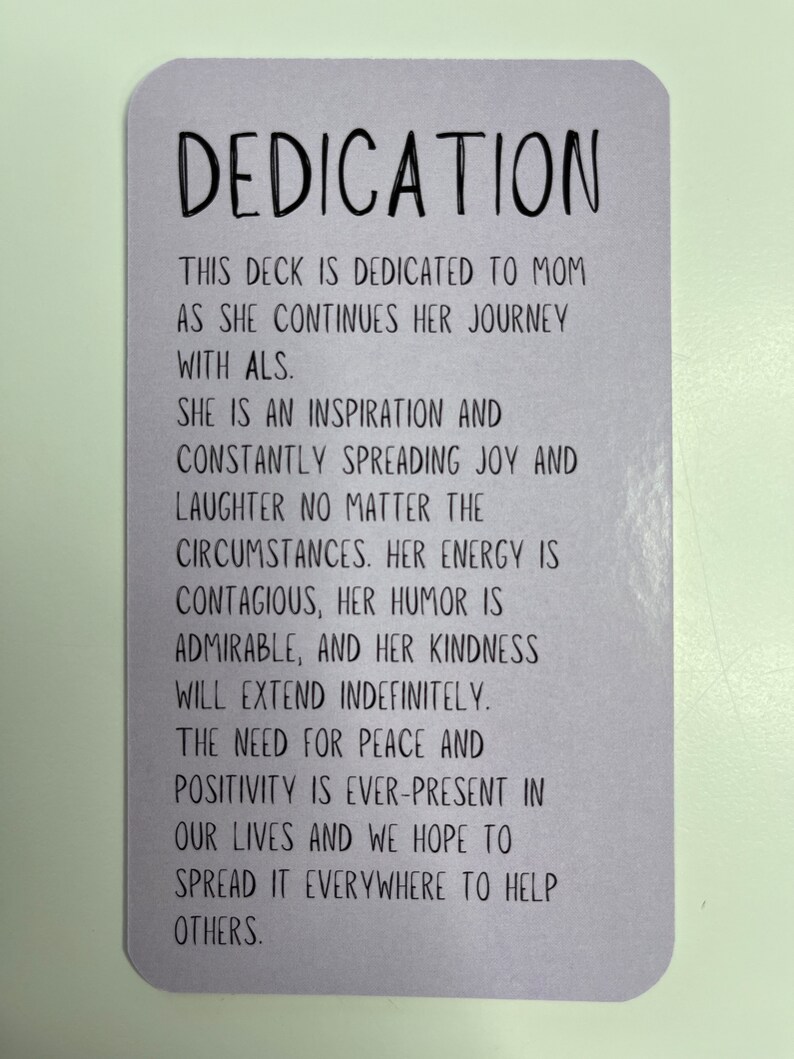 DEDICATION
THIS DECK IS DEDICATED TO MOM
AS SHE CONTINUES HER JOURNEY
WITH ALS.
SHE IS AN INSPIRATION AND
CONSTANTLY SPREADING JOY AND
LAUGHTER NO MATTER THE
CIRCUMSTANCES. HER ENERGY IS
CONTAGIOUS, HER HUMOR IS
ADMIRABLE, AND HER KINDNESS
WILL EXTEND INDEFINITELY.
THE NEED FOR PEACE AND
POSITIVITY IS EVER-PRESENT IN
OUR LIVES AND WE HOPE TO
SPREAD IT EVERYWHERE TO HELP
OTHERS.